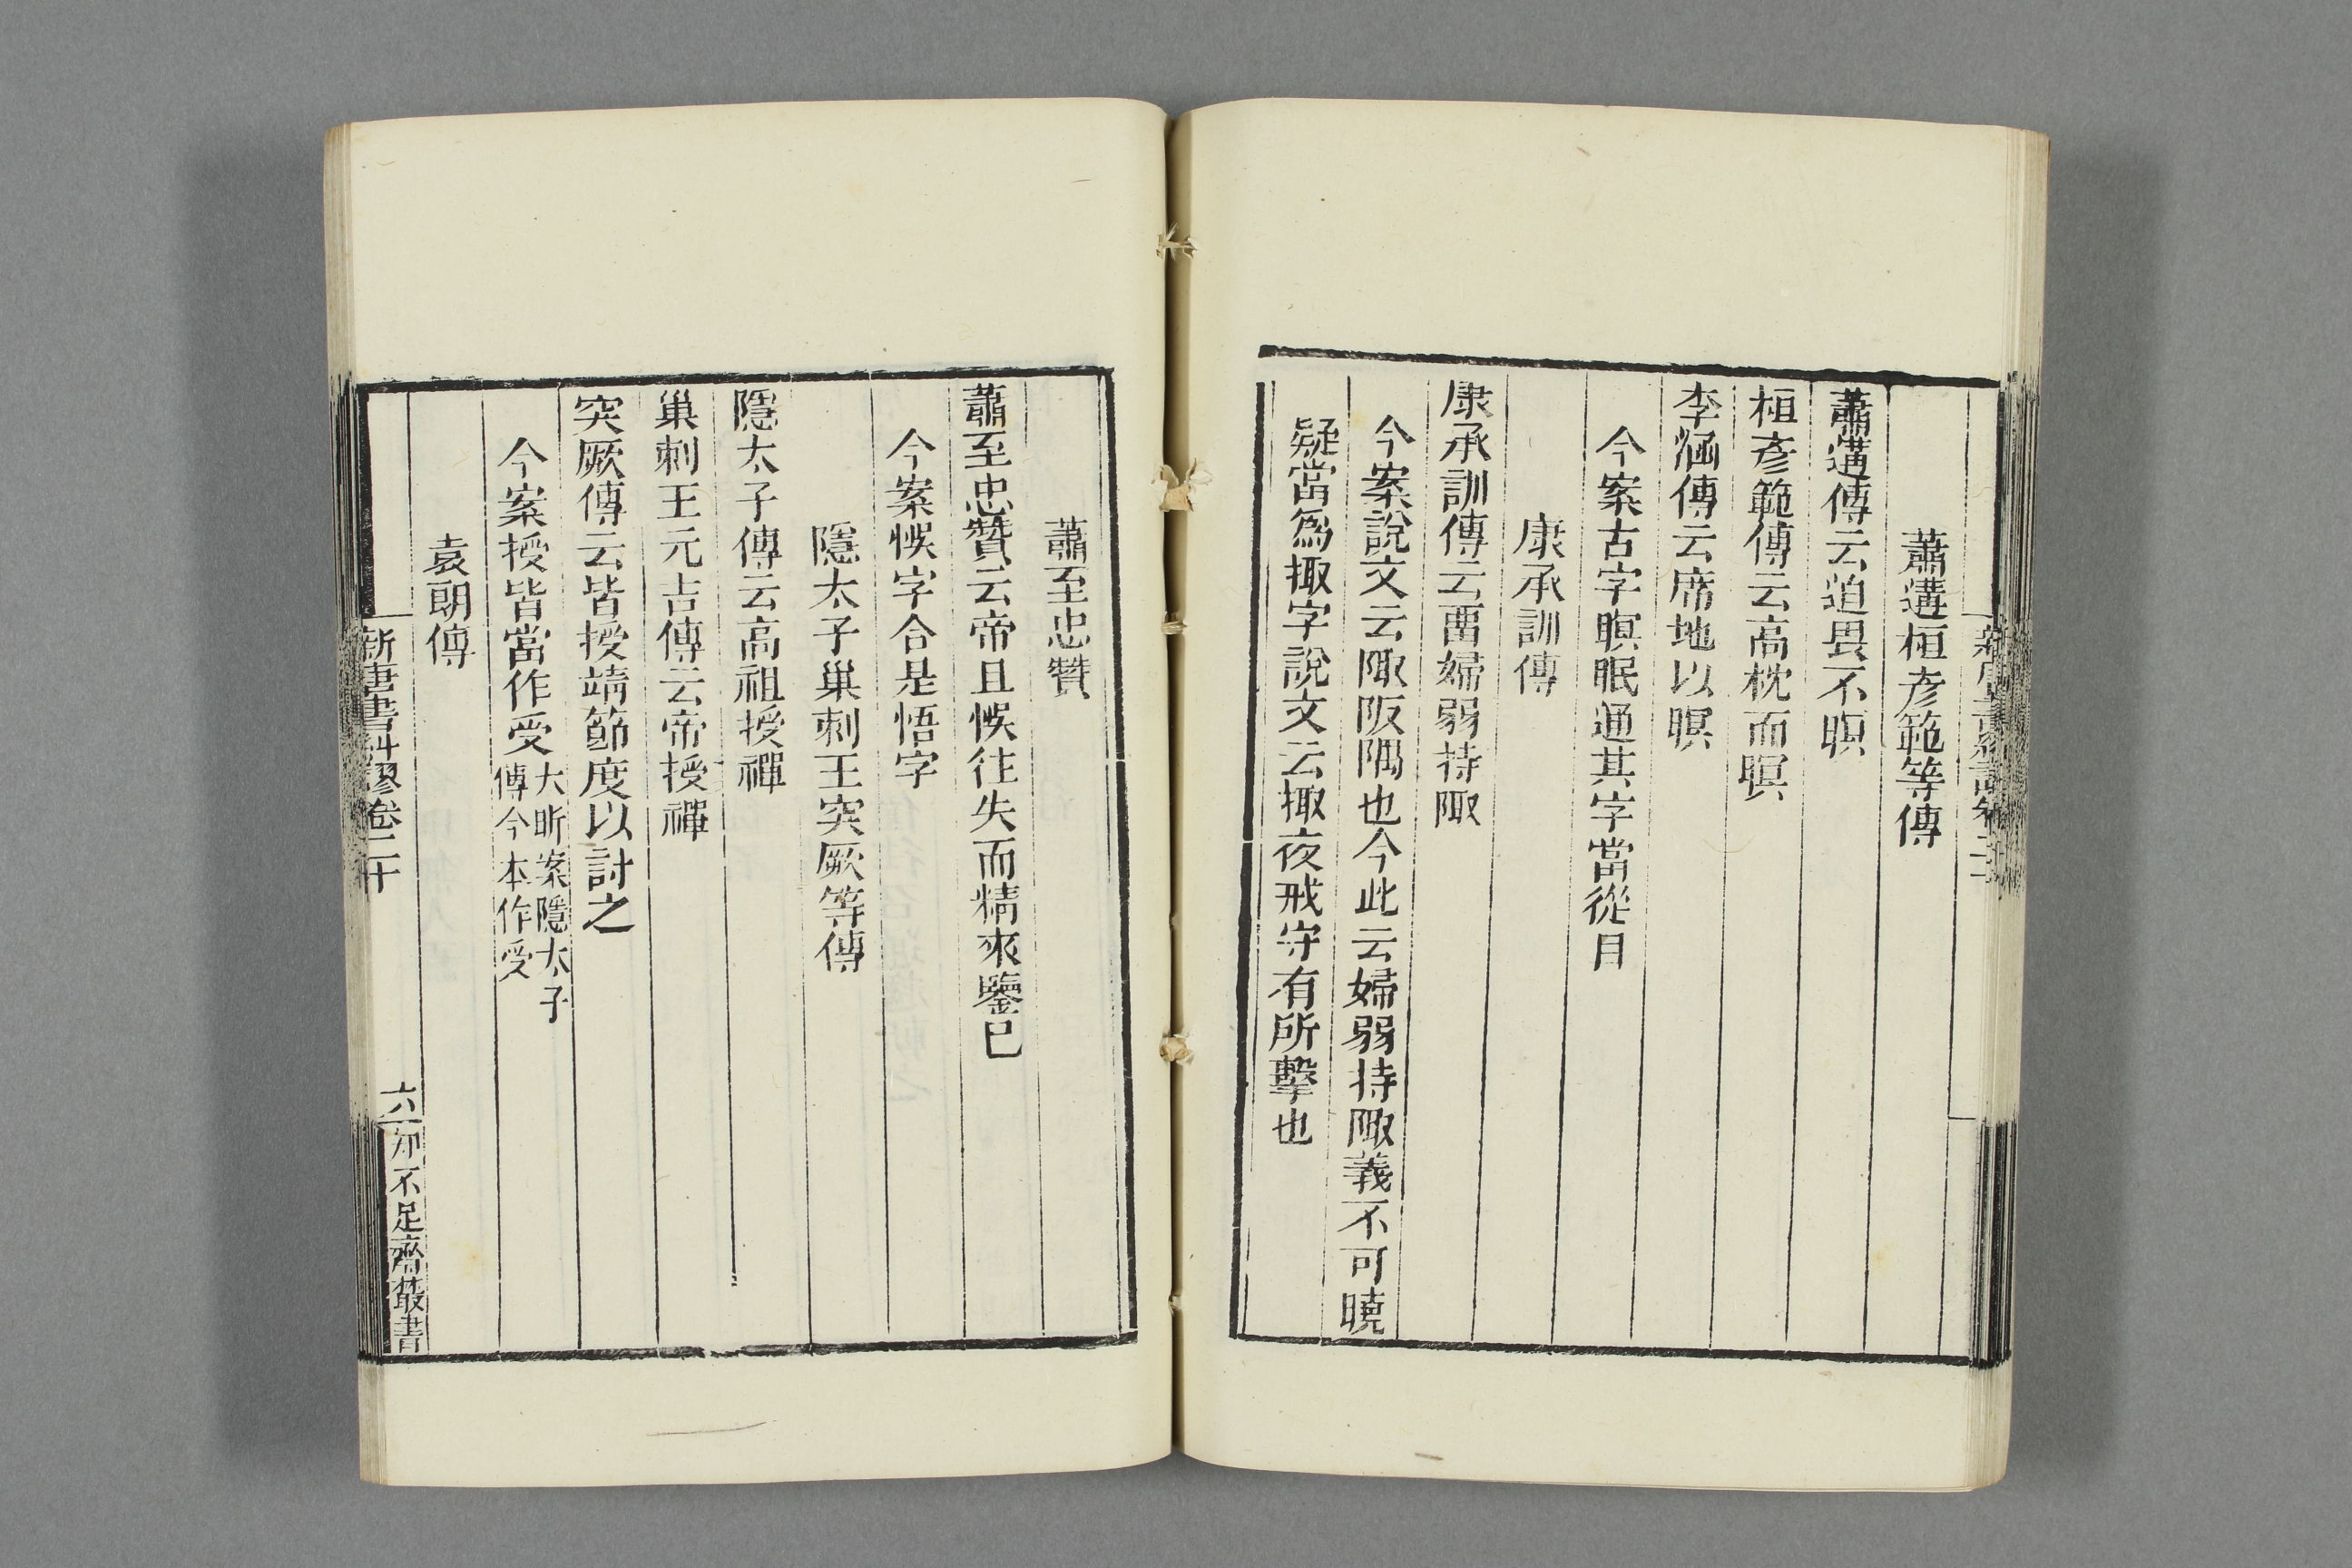 蕭遘桓彥範等傳
蕭遘傳云迫畏不暝
桓彥範傳云高枕而暝
李涵傳云席地以暝
今案古字暝眠通其字當從目
康承訓傳
康承訓傳云畱婦弱持陬
今案說文云陬阪隅也今此云婦弱持陬義不可曉
疑當爲掫字說文云掫夜戒守有所擊也
蕭至忠贊
蕭至忠贊云帝且悞往失而精來鑒巳
今案悞字合是悟字
隱太子巢刺王突厥等傳
隱太子傳云高祖授禪
巢刺王元吉傳云帝授禪
突厥傳云皆授靖節度以討之
今案授皆當作受大昕案隱太子
傳今本作受
袁朗傳
新唐書糾謬卷二十
六
知不足齋叢書